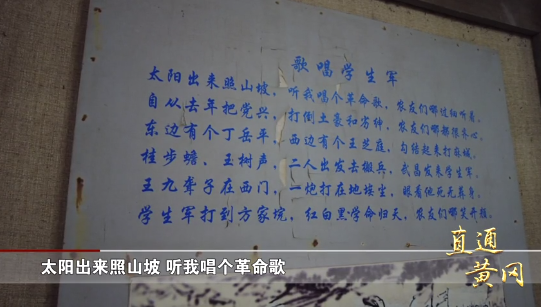 歌唱学生军
太阳出来照山坡，听我唱个革命歌，农友们哪过细听着。
自从去年把党兴，打倒土豪和劣绅，农友们哪都很齐心。
东边有个丁岳平，西边有个王芝庭，勾结起来打麻城。
桂步蟾、王树声，二人出发去搬兵，武昌发来学生军。
王九聋子在西门，一炮打在地埃尘，眼看他死无葬身。
学生军打到方家垸，红白黑学命归天，农友们哪笑开颜。
太阳出来照山坡 听我唱个革命歌
直通
黄冈